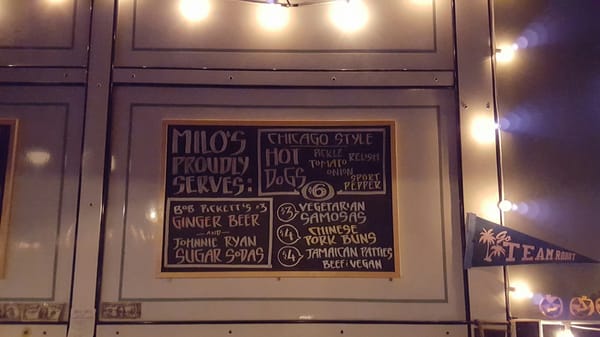 MILO'S
PROUDLY
SERVES:
CHICAGO STYLE
HOT
DOGS
PICKLE
RELISH
TOMATO
ONION
SPORT
PEPPER
$6
BOB PICKETT'S $3
GINGER BEER
-AND-
JOHNNIE RYAN
SUGAR SODAS
$3 VEGETARIAN
SAMOSAS
$4 CHINESE
PORK BUNS
$4 JAMAICAN PATTIES
BEEF; VEGAN
Go
TEAM ROBOT